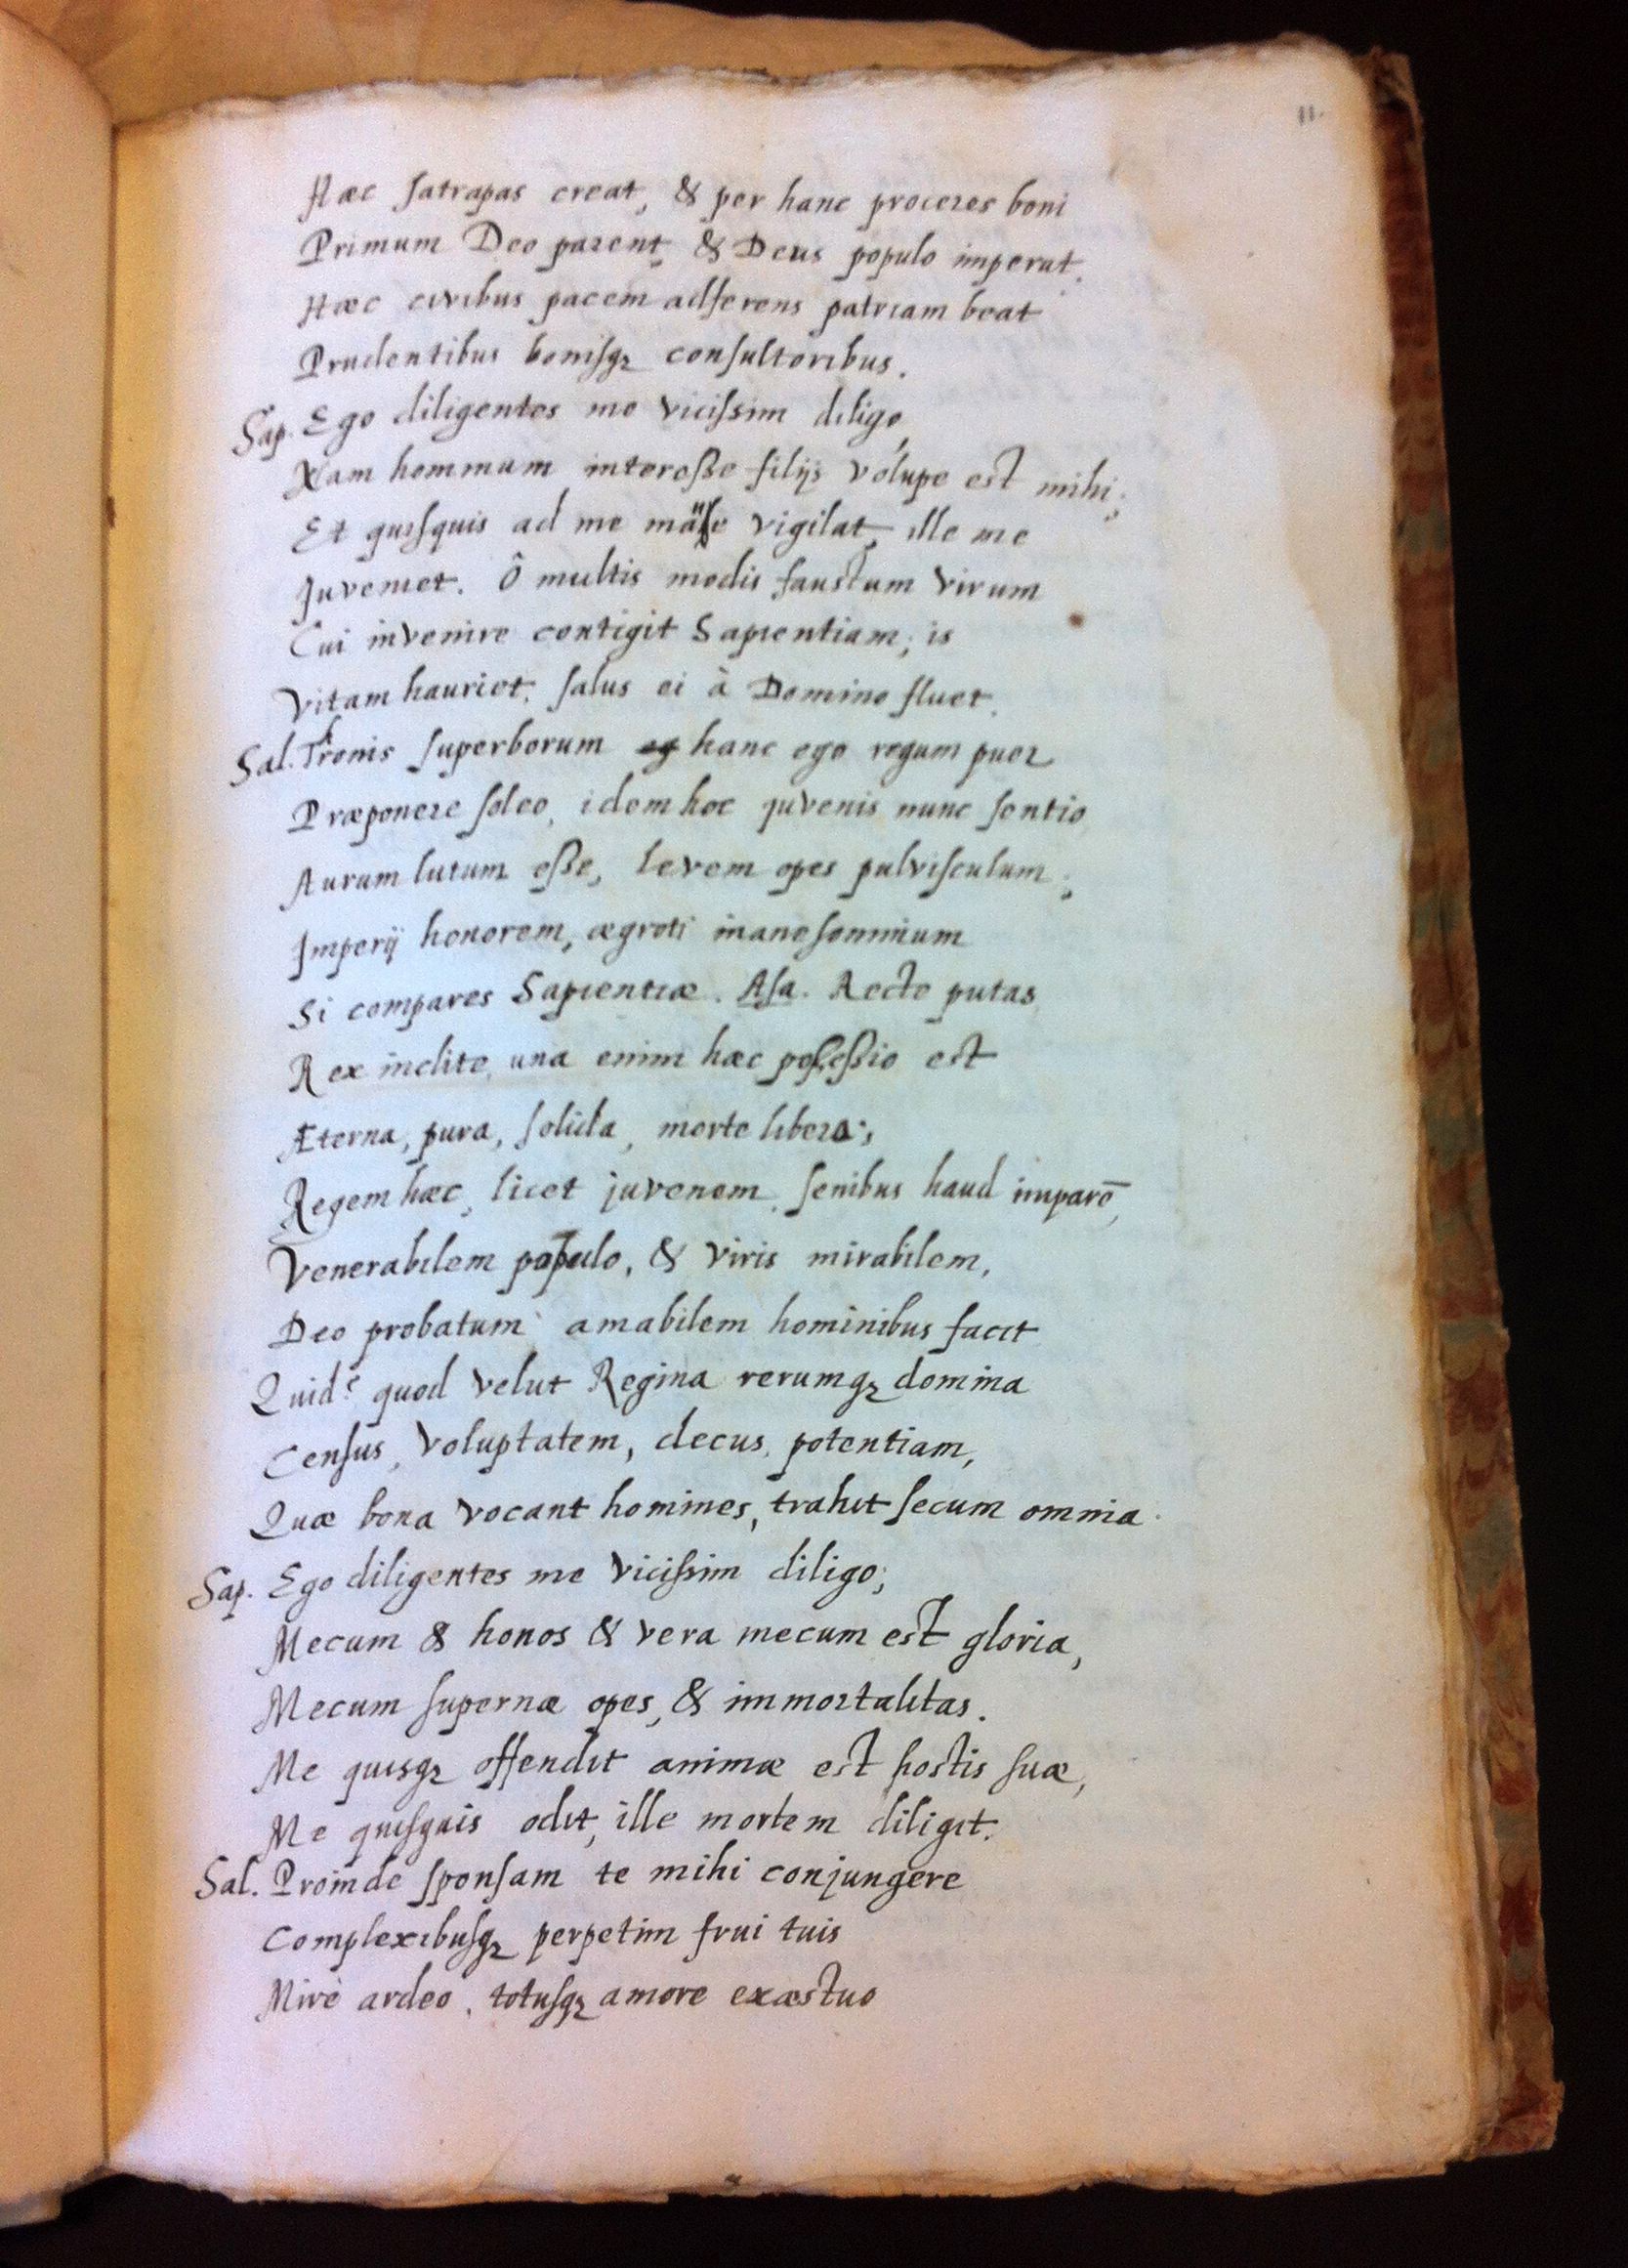 11.
Hæc ſatrapas creat, & per hanc proceres boni
Primum Deo parent, & Deus populo imperat.
Hæc civibus pacem adferens patriam beat
Prudentibus boniſqꝫ conſultoribus.
Sap. Ego diligentes me viciſsim diligo,
Nam hominum intereſſe filijs volupe est mihi;
Et quiſquis ad me mane vigilat, ille me
Inveniet. Ô multis modis faustum virum
Cui invenire contigit Sapientiam; is
Vitam hauriet, ſalus ei à Domino fluet.
Sal. Thronis ſuperborum hanc ego regum puer
Præponere ſoleo, idem hoc juvenis nunc ſentio
Aurum lutum eſſe, levem opes pulviſculum;
Imperij honorem, ægroti inane ſomnium
Si compares Sapientiæ. Aſa. Recte putas
Rex inclite, una enim hæc poſſeſſio est
Æterna, pura, ſolida, morte libera;
Regem hæc, licet juvenem, ſenibus haud imparē,
Venerabilem populo, & viris mirabilem,
Deo probatum amabilem hominibus facit
Quid? quod velut Regina rerumqꝫ domina
Cenſus, voluptatem, decus, potentiam,
Quæ bona vocant homines, trahit ſecum omnia.
Sap. Ego diligentes me viciſsim diligo;
Mecum & honos & vera mecum est gloria,
Mecum ſupernæ opes, & immortalitas.
Me quisqꝫ offendit animæ est hostis ſuæ,
Me quiſquis odit, ille mortem diligit.
Sal. Proinde ſponſam te mihi conjungere
Complexibuſqꝫ perpetim frui tuis
Mirè ardeo, totuſqꝫ amore exæstuo